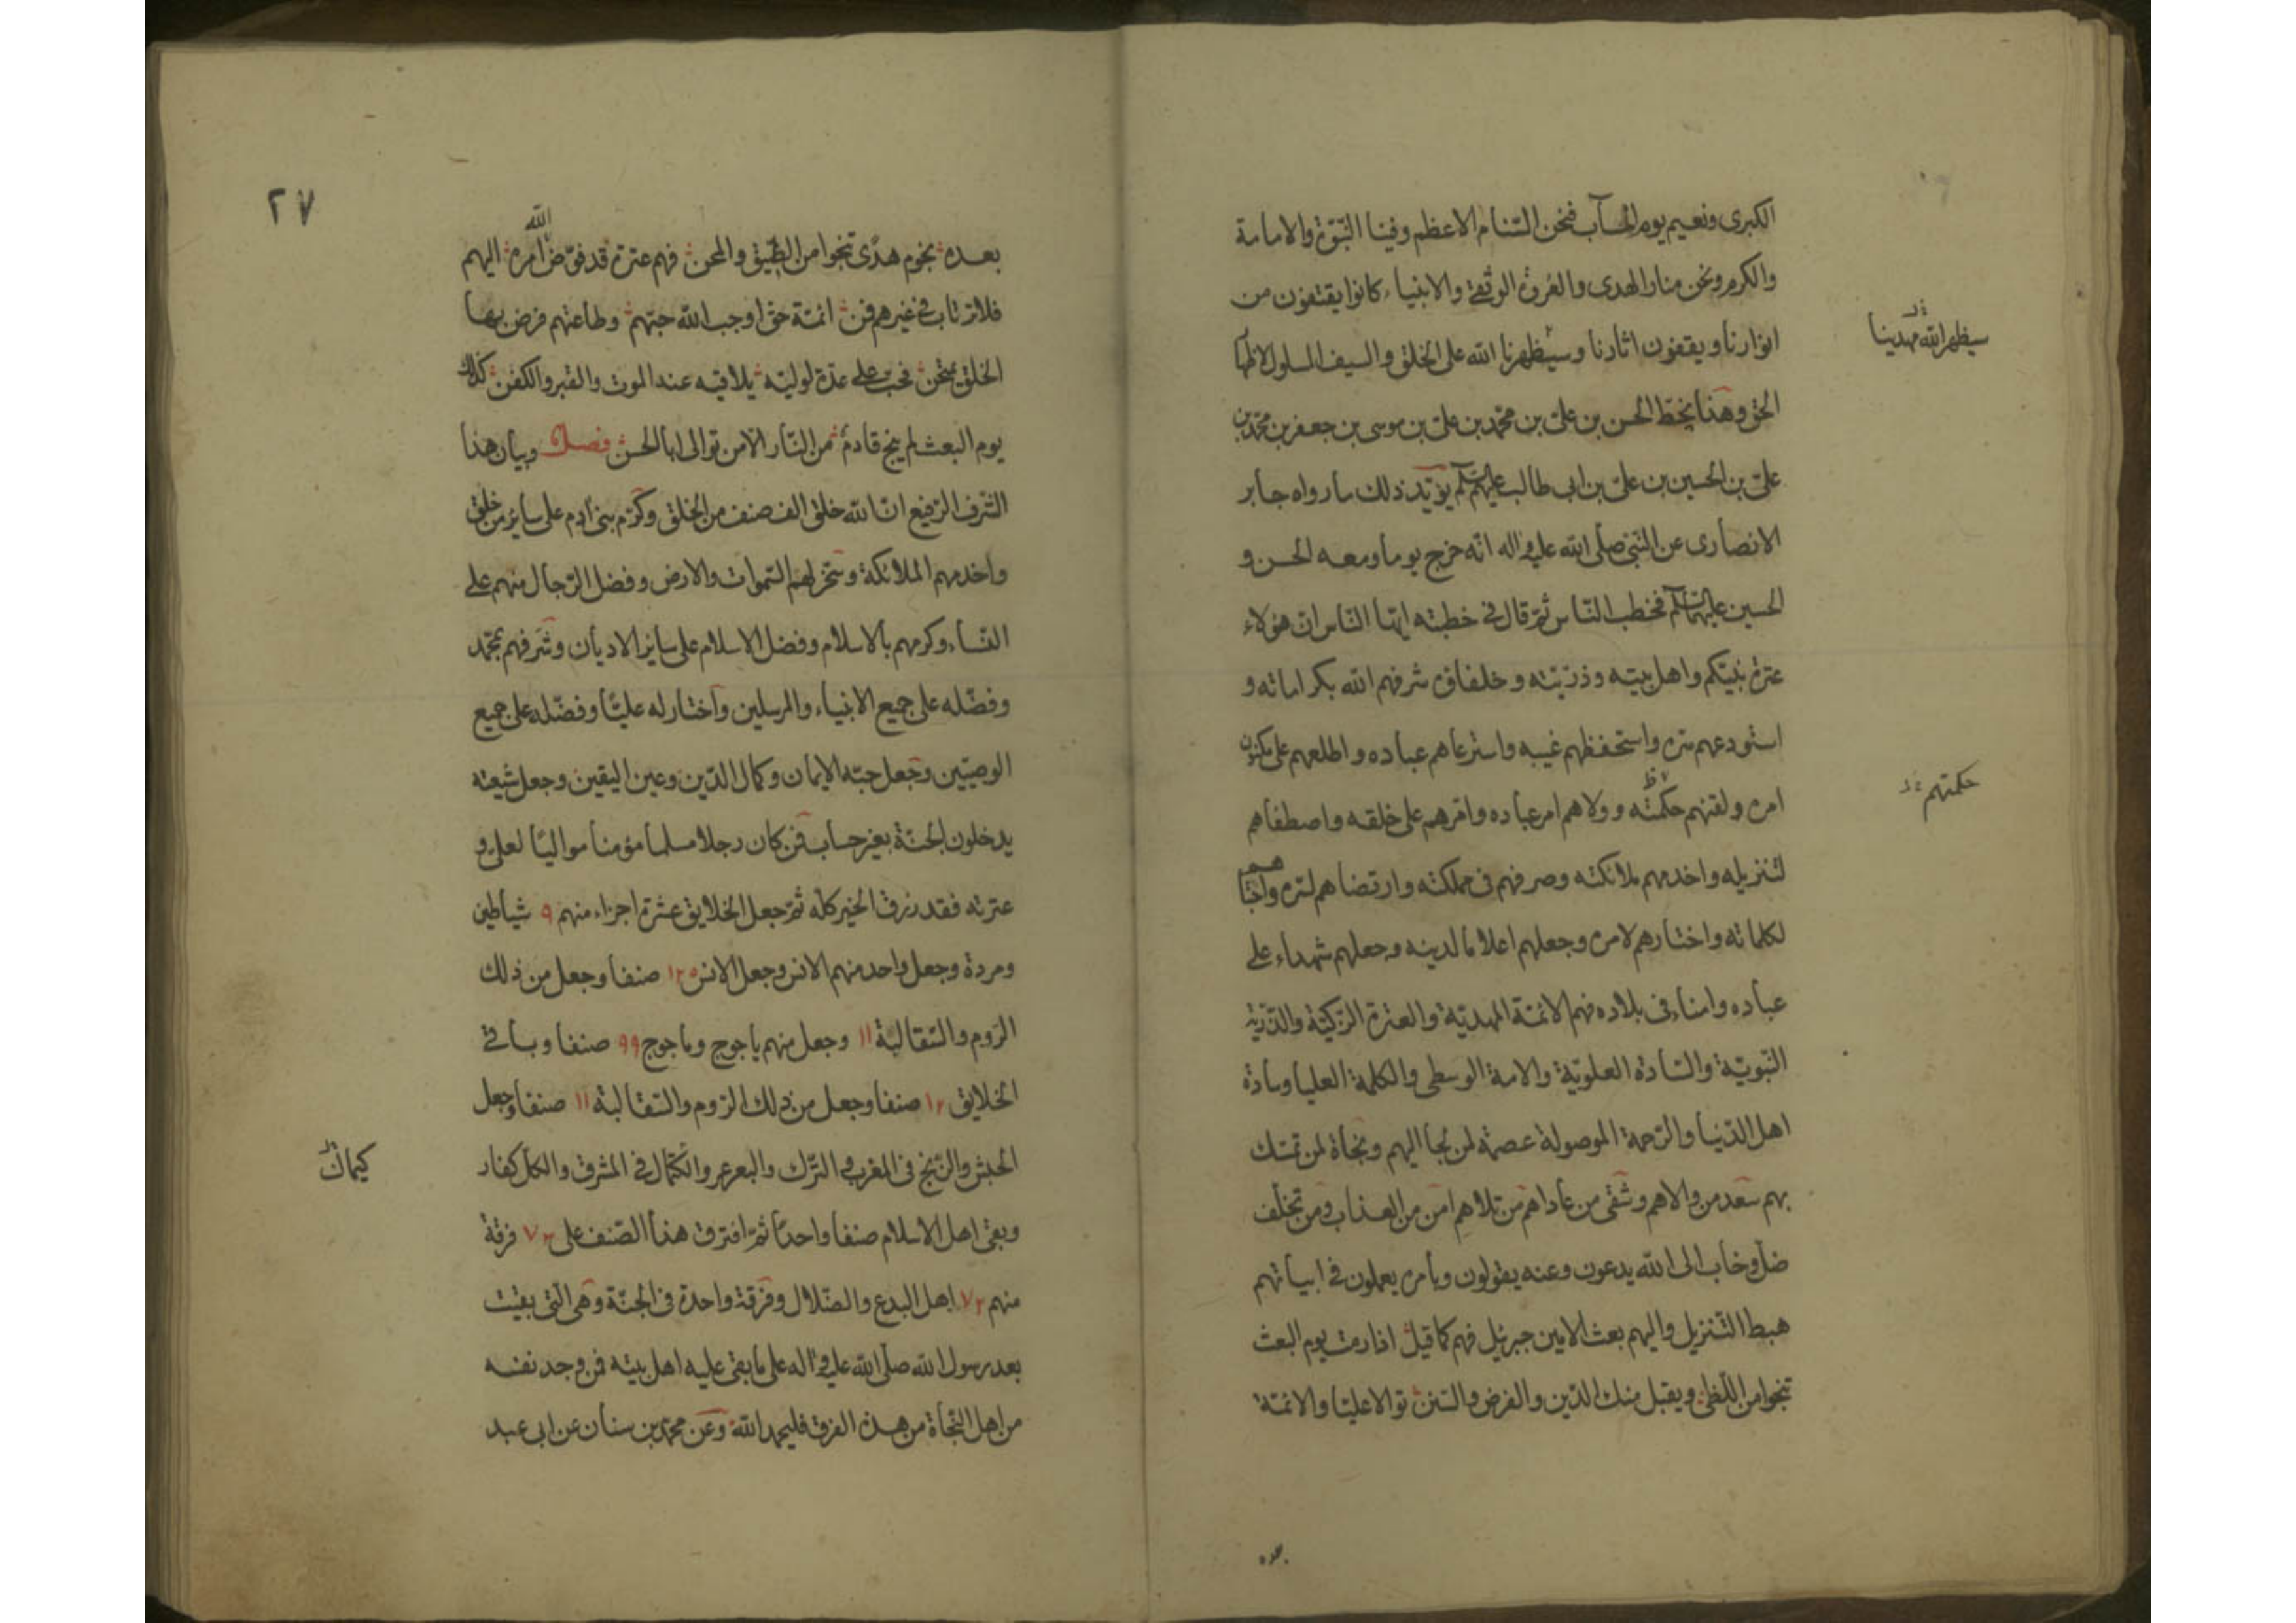 الكبرى ونعيم يوم الحساب فنحن السّنام الاعظم وفينا النّبوّة والامامة
والكرم ونحن منار الهدى والعروة الوثقى والانبياء كانوا يقتفون من
انوارنا ويقفون اثارنا وسيظهرنا الله على الخلق والسيف المسلول لاظهار
سيظهر الله مهدينا
الحق وهذا بخطّ الحسن بن علىّ بن محمّد بن علىّ بن موسى بن جعفر بن محمّد بن
علىّ بن الحسين بن علىّ بن ابى طالب عليهم السّلم يؤيّد ذلك ما رواه جابر
الانصارى عن النّبىّ صلى الله عليه واله انّه خرج يوما ومعه الحسن و
الحسين عليهما السّلم فخطب النّاس ثمّ قال فى خطبته ايّها النّاس انّ هؤلاء
عترة نبيّكم واهل بيته وذرّيّته وخلفاؤه شرفهم الله بكراماته و
استودعهم سرّه واستحفظهم غيبه واسترعاهم عباده واطلعهم على مكنون
امره ولقنهم حكمته وولاهم امر عباده وامّرهم على خلقه واصطفاهم
حكمتهم
لتنزيله واخدمهم ملائكته وصرفهم فى مملكته وارتضاهم لسرّه واجتباهم
لكلماته واختارهم لامره وجعلهم اعلاما لدينه وجعلهم شهداء على
عباده وامناء فى بلاده فهم الائمّة المهديّة والعترة الزكيّة والذّرّيّة
النّبويّة والسّادة العلويّة والامة الوسطى والكلمة العليا وسادة
اهل الدّنيا والرّحمة الموصولة عصمة لمن لجا اليهم ونجاة لمن تمسّك
بهم سعد من والاهم وشقى من عاداهم من تلاهم امن من العذاب ومن تخلّف
ضلّ وخاب الى الله يدعون وعنه يقولون وبامره يعملون فى ابياتهم
هبط التّنزيل واليهم بعث الامين جبرئيل فهم كما قيل اذا رمت يوم البعث
تنجوا من اللّظى ويقبل منك الدّين والفرض والسّنن توالا عليّا والائمّة
بعده
٢٧
بعده نجوم هدًى تنجوا من الضّيق والمحن فهم عترة قد فوّض الله امره اليهم
فلا ترتاب فى غيرهم فمن ائمّة حق اوجب الله حبّهم وطاعتهم فرض بها
الخلق يمتحن فحب على عدّة لوليّه يلاقيه عند الموت والقبر والكفن كذلك
يوم البعث لم ينج قادم من النّار الّا من توالى ابا الحسن فصل وبيان هذا
الشّرف الرّفيع انّ الله خلق الف صنف من الخلق وكرّم بنى آدم على سائر من خلق
واخدمهم الملائكة وسخّر لهم السّموات والارض وفضل الرّجال منهم على
النّساء وكرمهم بالاسلام وفضل الاسلام على سائر الاديان وشرفهم بمحمّد
وفضّله على جميع الانبياء والمرسلين واختار له عليّا وفضّله على جميع
الوصيّين وجعل حبّه الايمان وكمال الدّين وعين اليقين وجعل شيعته
يدخلون الجنّة بغير حساب فمن كان رجلا مسلما مؤمنا مواليًا لعلى و
عترته فقد رزق الخير كلّه ثمّ جعل الخلايق عشرة اجزاء منهم ٩ شياطين
ومردة وجعل واحد منهم الانس وجعل الانس ١٢٥ صنفا وجعل من ذلك
الرّوم والسّقالبة ١١ وجعل منهم ياجوج وماجوج ٩٩ صنفا وباقى
الخلايق ١٢ صنفا وجعل من ذلك الرّوم والسّقالبة ١١ صنفا وجعل
الحبش والزّنج فى المغرب والترك والبعرعر والكتمال فى المشرق والكل كفار
كيماك
وبقى اهل الاسلام صنفا واحدًا ثمّ افترق هذا الصّنف على ٧٣ فرقة
منهم ٧٢ اهل البدع والضّلال وفرقة واحدة فى الجنّة وهى الّتى بقيت
بعد رسول الله صلّى الله عليه واله على ما بقى عليه اهل بيته فمن وجد نفسه
من اهل النّجاة من هذه الفرق فليحمد الله وعن محمّد بن سنان عن ابى عبد